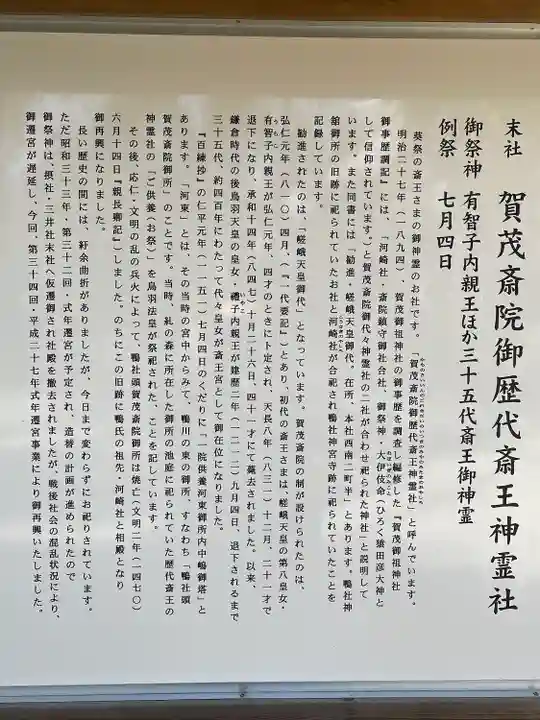 末社　賀茂斎院御歴代斎王神霊社
御祭神　有智子内親王ほか三十五代斎王御神霊
例祭　七月四日
葵祭の斎王さまの御神霊のお社です。「賀茂斎院御歴代斎王神霊社」と呼んでいます。
明治二十七年（一八九四）、賀茂御祖神社の御事歴を調査し編修した『賀茂御祖神社
御事歴調記』には、「河崎社・斎院鎮守御社合社、御祭神・大伊伎命（ひろく猿田彦大神と
して信仰されています。）と賀茂斎院御代々神霊社の二社が合わせ祀られた神社」と説明して
います。また同書には「勧進・嵯峨天皇御代。在所、本社西南二町半」とあります。鴨社神
舘御所の旧跡に祀られていたお社と河崎社が合祀され鴨社神宮寺跡に祀られていたことを
記録しています。
勧進されたのは、「嵯峨天皇御代」となっています。賀茂斎院の制が設けられたのは、
弘仁元年（八一〇）四月、（『一代要記』）とあり、初代の斎王さまは、嵯峨天皇の第八皇女・
有智子内親王が弘仁元年、四才のときに卜定され、天長八年（八三一）十二月、二十一才で
退下になり、承和十四年（八四七）十月二十六日、四十一才にて薨去されました。以来、
鎌倉時代の後鳥羽天皇の皇女・禮子内親王が建暦二年（一二一二）九月四日、退下されるまで
三十五代、約四百年にわたって代々皇女が斎王宮として御在位になりました。
『百練抄』の仁平元年（一一五一）七月四日のくだりに「一院供養河東御所内中嶋御塔」と
あります。「河東」とは、その当時の宮中からみて、鴨川の東の御所、すなわち「鴨社頭
賀茂斎院御所」のことです。当時、糺の森に所在した御所の池庭に祀られていた歴代斎王の
神霊社の「ご供養（お祭）」を鳥羽法皇が祭祀された、ことを記しています。
その後、応仁・文明の乱の兵火によって、鴨社頭賀茂斎院御所は焼亡（文明二年（一四七〇）
六月十四日『親長卿記』）しました。のちにこの旧跡に鴨氏の祖先・河崎社と相殿となり
御再興になりました。
長い歴史の間には、紆余曲折がありましたが、今日まで変わらずにお祀りされています。
ただ昭和三十三年、第三十二回・式年遷宮が予定され、造替の計画が進められたので
御祭神は、摂社・三井社末社へ仮遷御され社殿を撤去されましたが、戦後社会の混乱状況により、
御遷宮が遅延し、今回、第三十四回・平成二十七年式年遷宮事業により御再興いたしました。